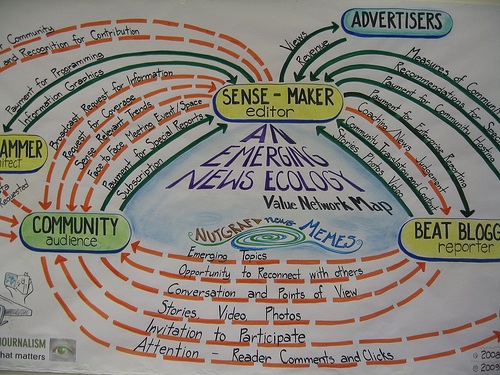 Community
and Recognition for Contribution
Payment for Programming
Information Graphics
Broadcast Request for Information
Request for Coverage
Sense Relevant Trends
Face to Face Meeting Event/Space
Payment for Special Reports
Subscription
ADVERTISERS
Views
Revenue
SENSE-MAKER
editor
Measures of Commun
Recommendations for S
Payment for Community
Payment for Enterprise Reporting
Coaching/News Judgement
Community Translation and
Stories Photos Video
AN
EMERGING
NEWS ECOLOGY
Value Network Map
AMMER
itect
Requested
COMMUNITY
audience
BEAT BLOGG
reporter
NUTGRAF news MEMES
Emerging Topics
Opportunity to Reconnect with others
Conversation and Points of View
Stories, Video, Photos
Invitation to Participate
Attention - Reader Comments and Clicks
JOURNALISM
hat matters
© 2008
© 2008